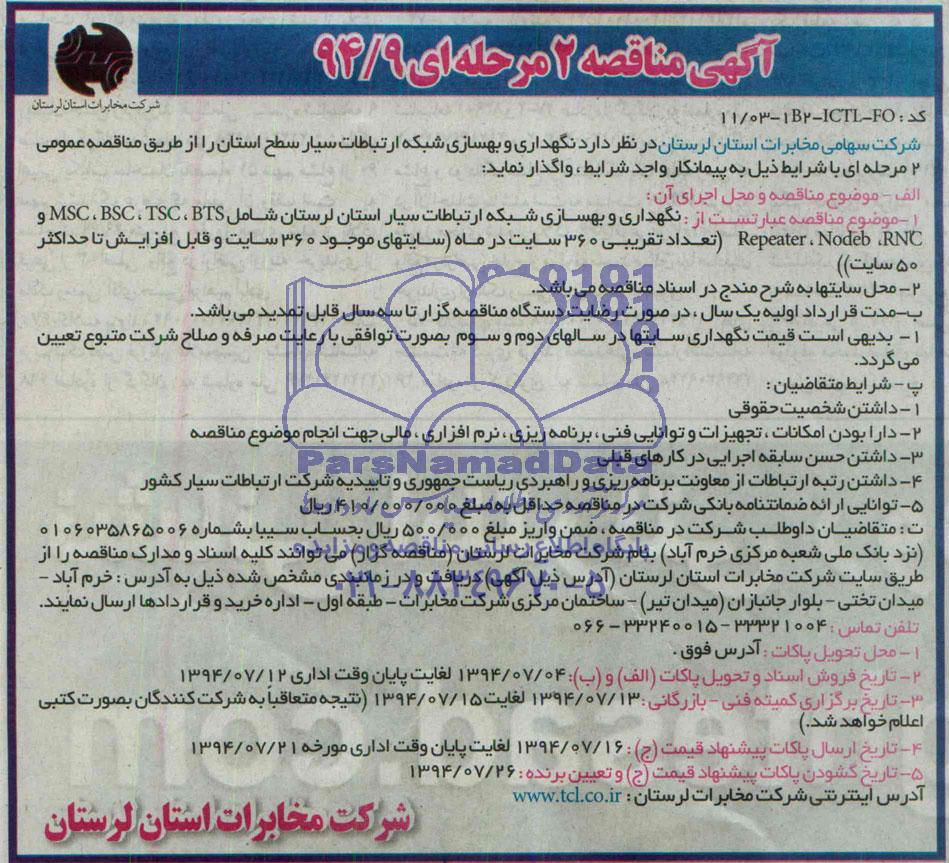 آگهی مناقصه ۲ مرحله ای ۹۴/۹
شرکت مخابرات استان لرستان
کد : ۱۱/۰۳-۱B۲-ICTL-FO
شرکت سهامی مخابرات استان لرستان در نظر دارد نگهداری و بهسازی شبکه ارتباطات سیار سطح استان را از طریق مناقصه عمومی
۲ مرحله ای با شرایط ذیل به پیمانکار واجد شرایط ، واگذار نماید:
الف - موضوع مناقصه و محل اجرای آن :
۱-موضوع مناقصه عبارتست از : نگهداری و بهسازی شبکه ارتباطات سیار استان لرستان شامل MSC ، BSC ، TSC ، BTS و
Repeater ، Nodeb ،RNC (تعداد تقریبی ۳۶۰ سایت در ماه (سایتهای موجود ۳۶۰ سایت و قابل افزایش تا حداکثر
۵۰ سایت))
۲- محل سایتها به شرح مندج در اسناد مناقصه می باشد.
ب-مدت قرارداد اولیه یک سال ، در صورت رضایت دستگاه مناقصه گزار تا سه سال قابل تمدید می باشد.
۱- بدیهی است قیمت نگهداری سایتها در سالهای دوم و سوم بصورت توافقی با رعایت صرفه و صلاح شرکت متبوع تعیین
می گردد.
پ - شرایط متقاضیان :
۱- داشتن شخصیت حقوقی
۲- دارا بودن امکانات ، تجهیزات و توانایی فنی ، برنامه ریزی ، نرم افزاری ، مالی جهت انجام موضوع مناقصه
۳- داشتن حسن سابقه اجرایی در کارهای قبلی
ParsNamadData
۴- داشتن رتبه ارتباطات از معاونت برنامه ریزی و راهبردی ریاست جمهوری و تاییدیه شرکت ارتباطات سیار کشور
۵- توانایی ارائه ضمانتنامه بانکی شرکت در مناقصه حداقل به مبلغ ۴۱۰/۰۰۰/۰۰۰ ریال
ت : متقاضیان داوطلب شرکت در مناقصه ، ضمن واریز مبلغ ۵۰۰/۰۰۰ ریال بحساب سیبا بشماره ۰۱۰۶۰۳۵۸۶۵۰۰۶
پایگاه اطلاع رسانی مناقصه و مزایده
(نزد بانک ملی شعبه مرکزی خرم آباد) بنام شرکت مخابرات لرستان (مناقصه گزار) می توانند کلیه اسناد و مدارک مناقصه را از
طریق سایت شرکت مخابرات استان لرستان (آدرس ذیل آگهی) دریافت و در زمانبندی مشخص شده ذیل به آدرس : خرم آباد -
۰۲۱-۸۸۳۴۹۶۷۰-۵
میدان تختی - بلوار جانبازان (میدان تیر) - ساختمان مرکزی شرکت مخابرات - طبقه اول - اداره خرید و قراردادها ارسال نمایند.
تلفن تماس : ۳۳۳۲۱۰۰۴ - ۳۳۲۴۰۰۱۵-۰۶۶
۱- محل تحویل پاکات : آدرس فوق .
۲- تاریخ فروش اسناد و تحویل پاکات (الف) و (ب): ۱۳۹۴/۰۷/۰۴ لغایت پایان وقت اداری ۱۳۹۴/۰۷/۱۲
۳- تاریخ برگزاری کمیته فنی - بازرگانی : ۱۳۹۴/۰۷/۱۳ لغایت ۱۳۹۴/۰۷/۱۵ (نتیجه متعاقباً به شرکت کنندگان بصورت کتبی
اعلام خواهد شد.)
۴- تاریخ ارسال پاکات پیشنهاد قیمت (ج) : ۱۳۹۴/۰۷/۱۶ لغایت پایان وقت اداری مورخه ۱۳۹۴/۰۷/۲۱
۵- تاریخ گشودن پاکات پیشنهاد قیمت (ج) و تعیین برنده : ۱۳۹۴/۰۷/۲۶
آدرس اینترنتی شرکت مخابرات لرستان : www.tcl.co.ir
شرکت مخابرات استان لرستان